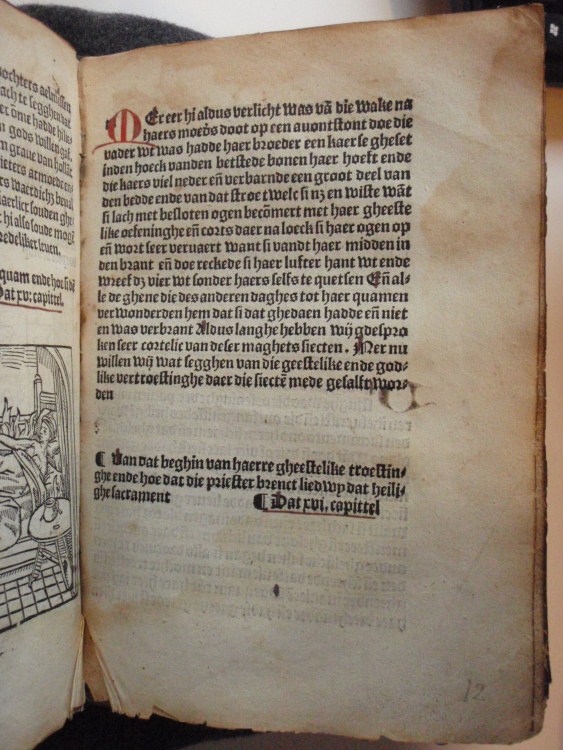 ochters aelmissen
ach te segghen dat
er õme hadde
n gods willen gaf.
m graue van hollãt
ieters armoede en
s waerdichz beual
aerlier souden ghe
t hi also soude mogẽ
redeliker leuen.
quam ende hoe si
Dat xv: capittel.
OEr eer hi aldus verlicht was vã die wake na
haers moeds doot op een auontstont doe die
vader wt was hadde haer broeder een kaerse gheset
inden hoeck vanden betstede bonen haer hoeft ende
die kaers viel neder eñ verbarnde een groot deel van
den bedde ende van dat stroe twelc si nz en wiste wãt
si lach met besloten ogen becõmert met haer gheeste
like oefeninghe eñ corts daer na loeck si haer ogen op
eñ wort seer veruaert want si vandt haer midden in
den brant eñ doe reckede si haer lufter hant wt ende
wreef dz vier wt sonder haers selfs te quetsen Eñ al-
le de ghene die des anderen daghes tot haer quamen
verwonderden hem dat si dat ghedaen hadde eñ niet
en was verbrant Aldus langhe hebben wij gdespro
ken seer cortelic van deser maghets siecten. Mer nu
willen wij wat segghen van die geestelike ende god-
like vertroestinghe daer die siectẽ mede gesalft wor-
den
¶ Van dat beghin van haerre gheestelike troestin-
ghe ende hoe dat die priester brenct liedwy dat heili-
ghe sacrament ¶ Dat xvi. capittel
12